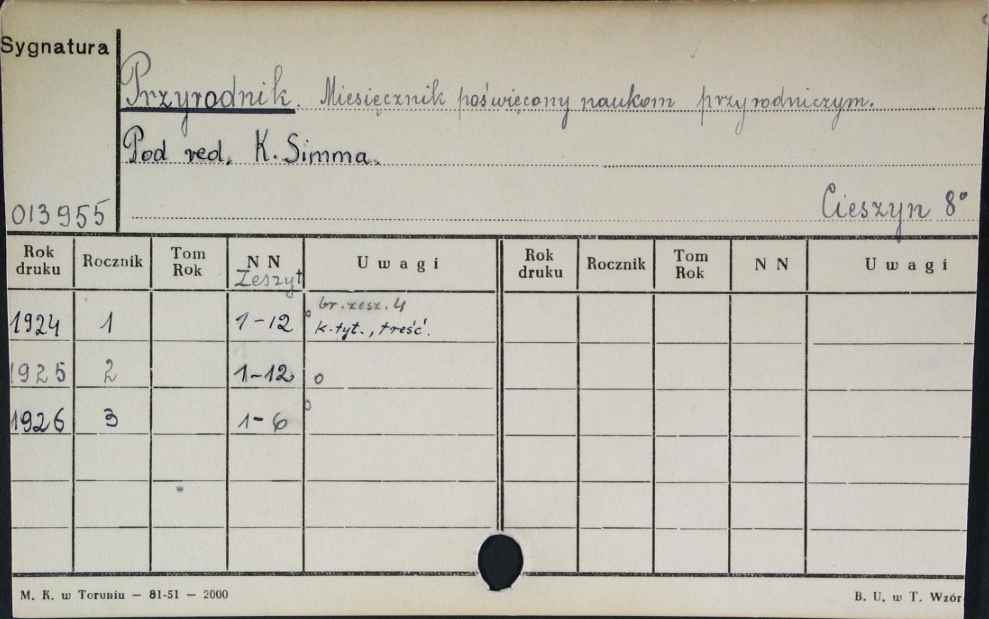 Sygnatura
Przyrodnik. Miesięcznik poświęcony naukom przyrodniczym.
Pod red. K. Simma.
013955
Cieszyn 8°
Rok druku Rocznik Tom Rok N N Zeszyt Uwagi Rok druku Rocznik Tom Rok N N Uwagi
br. zesz. 4
1924 1 1-12 o k. tyt., treść.
1925 2 1-12 o
1926 3 1-6 o
M. K. w Toruniu — 81-51 — 2000
B. U. w T. Wzór